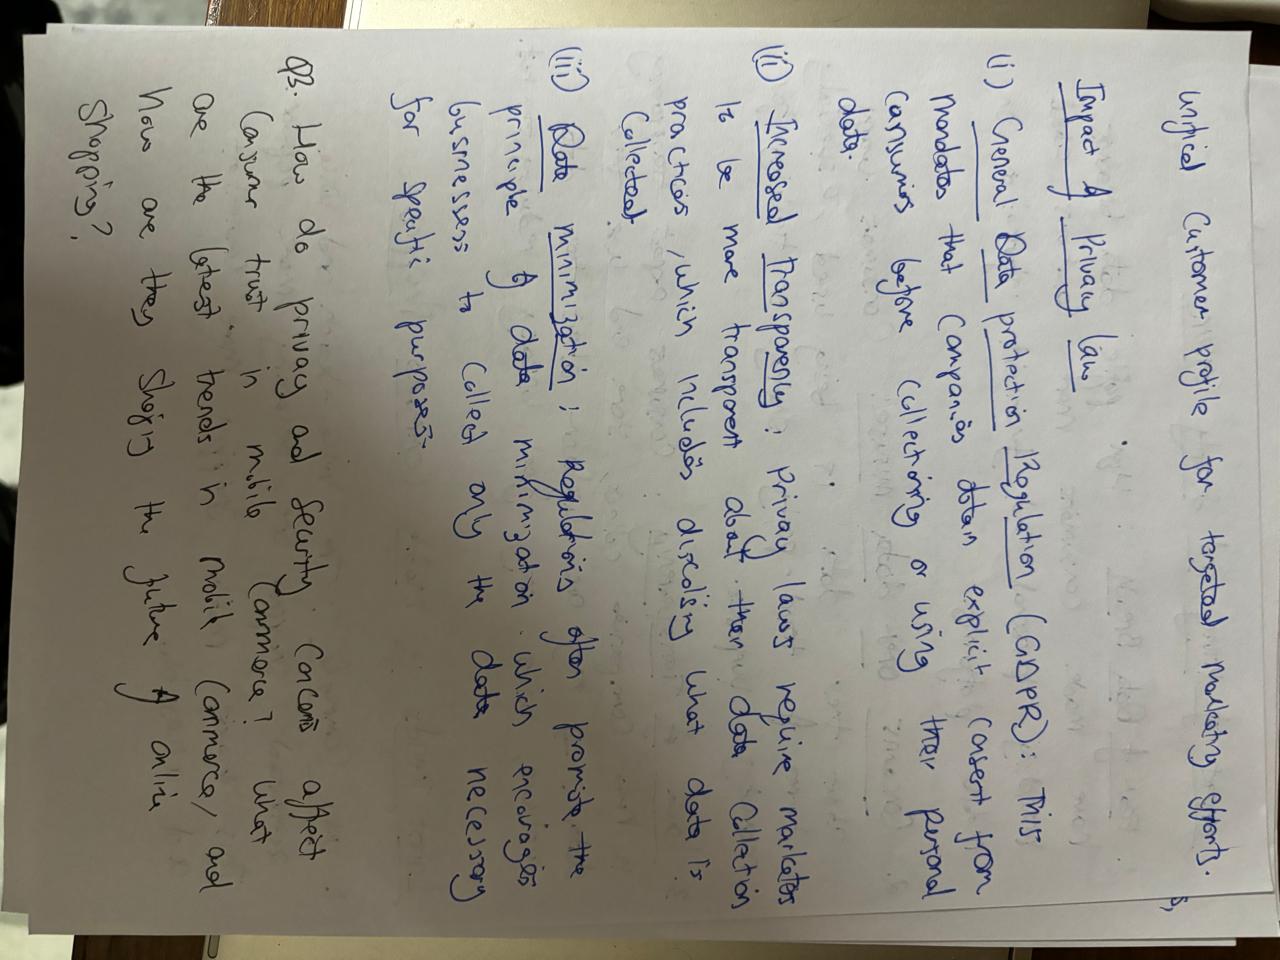 unified Customer profile for targeted marketing efforts.
s,
Impact of Privacy law
(i) General Data protection Regulation (GDPR): This
mandates that companies obtain explicit consent from
consumers before collectioning or using their personal
data.
(ii) Increased transparency: Privay laws require marketers
to be more transparent about their data Collection
practices, which includes discolsing what data is
Collected.
(iii) Data minimization: Regulations often promote the
principle of data minimization which encourages
businessess to Collect only the data necessary
for specific purposes.
Q3. How do privacy and Security Concerns affect
Consumer trust in mobile Commerce? What
are the latest trends in mobile Commerce, and
how are they shaping the future of online
shopping?